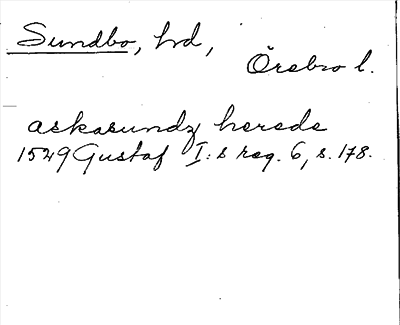 Sundbo, hd,
Örebro l.
askasundz herede
1529 Gustaf I:s reg. 6, s. 178.